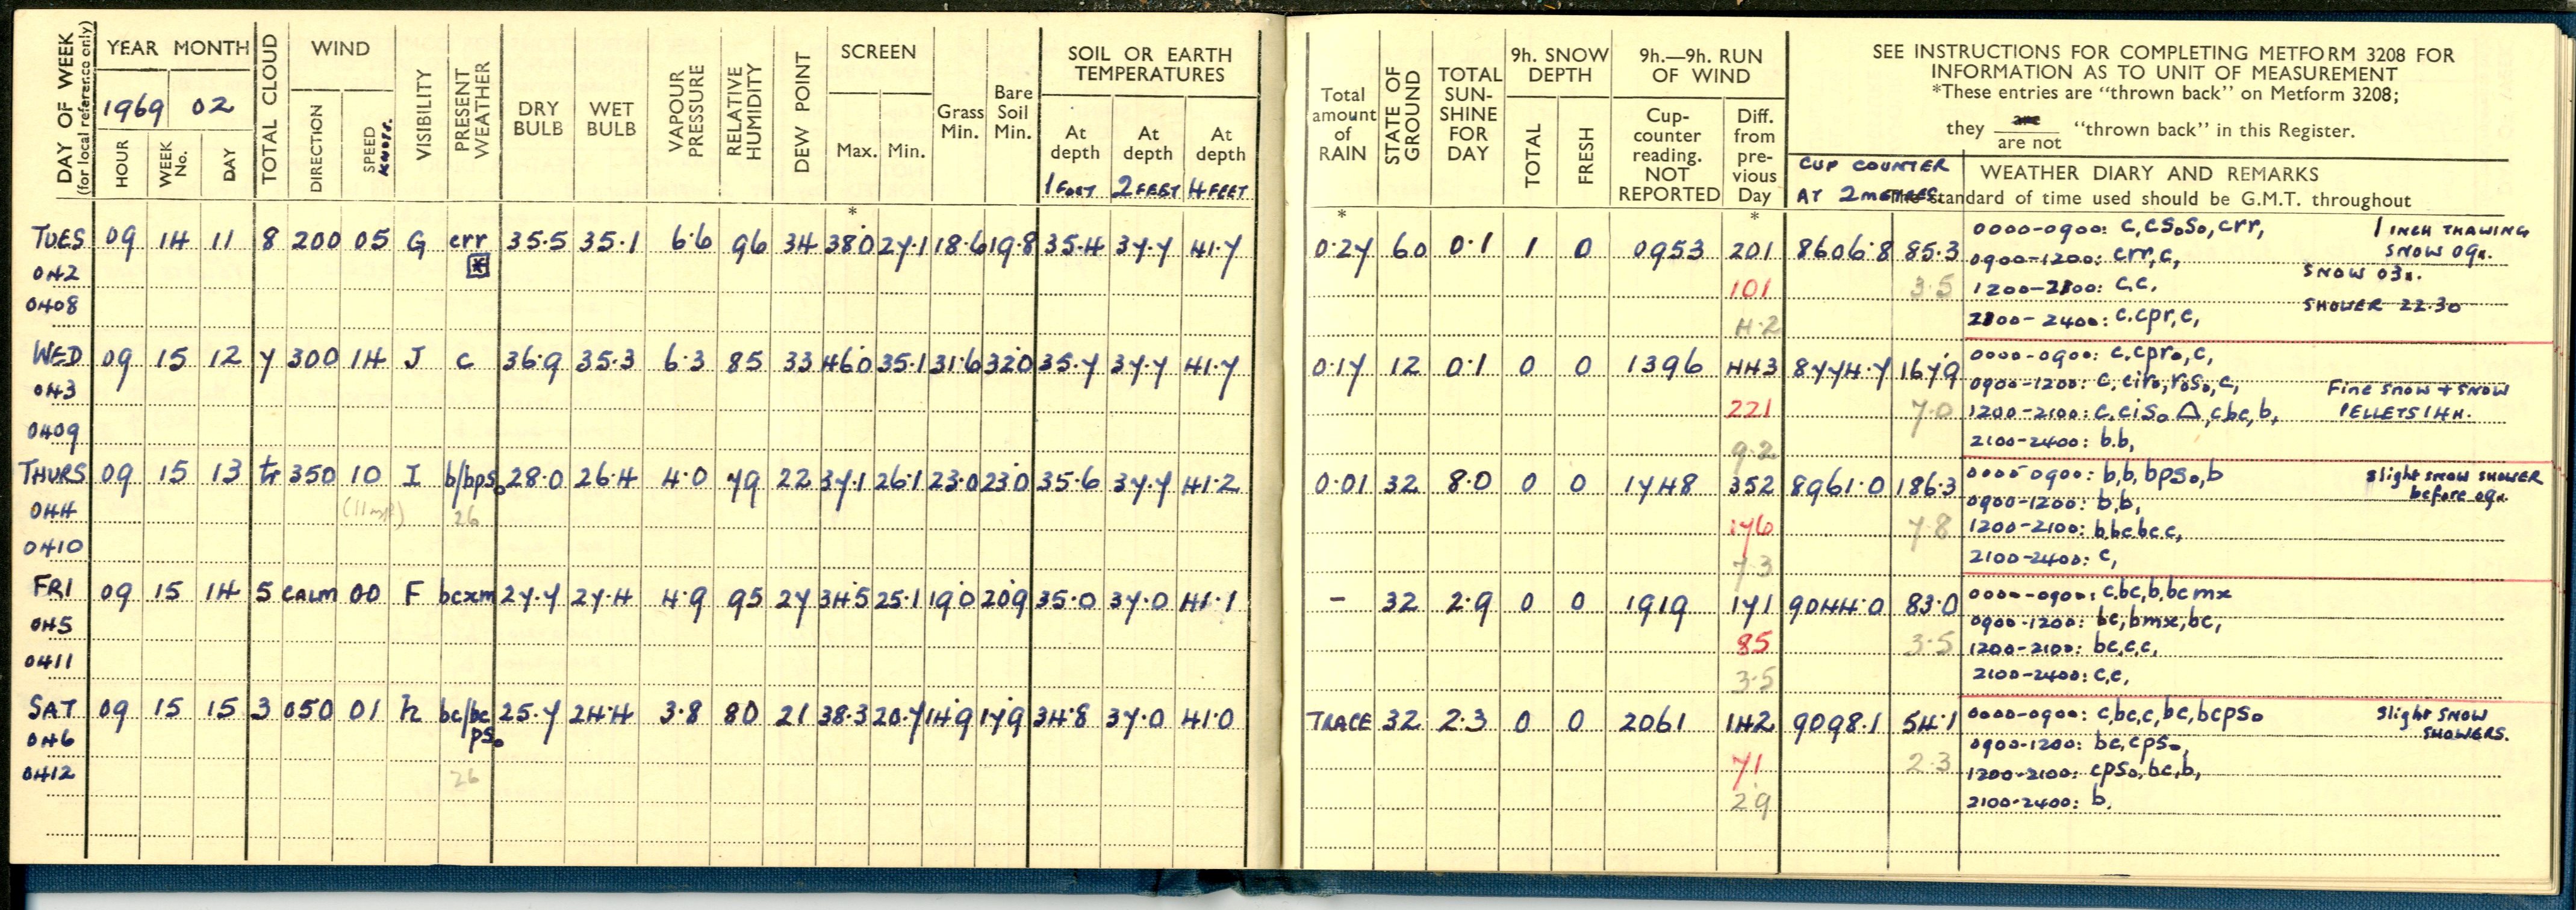 DAY OF WEEK (for local reference only)
YEAR MONTH
1969 02
HOUR WEEK No. DAY
TOTAL CLOUD
WIND
DIRECTION SPEED KNOTS.
VISIBILITY
PRESENT WEATHER
DRY BULB
WET BULB
VAPOUR PRESSURE
RELATIVE HUMIDITY
DEW POINT
SCREEN
Max. Min.
Grass Min.
Bare Soil Min.
SOIL OR EARTH TEMPERATURES
At depth At depth At depth
1 FOOT 2 FEET 4 FEET
*
Total amount of RAIN
STATE OF GROUND
TOTAL SUN-SHINE FOR DAY
9h. SNOW DEPTH
TOTAL FRESH
9h.—9h. RUN OF WIND
Cup-counter reading. NOT REPORTED
Diff. from pre-vious Day
* *
SEE INSTRUCTIONS FOR COMPLETING METFORM 3208 FOR
INFORMATION AS TO UNIT OF MEASUREMENT
*These entries are "thrown back" on Metform 3208;
they are / are not "thrown back" in this Register.
CUP COUNTER
AT 2 METRES.
WEATHER DIARY AND REMARKS
The standard of time used should be G.M.T. throughout
TUES 09 14 11 8 200 05 G crr 35.5 35.1 6.6 96 34 38.0 27.1 18.6 19.8 35.4 37.7 41.7 0.27 60 0.1 1 0 0953 201 8606.8 85.3
042
0408
101 3.5
4.2
0000-0900: c,cs₀s₀,crr, 1 INCH THAWING SNOW 09h.
0900-1200: crr,c, SNOW 03h.
1200-2100: c,c,
2100-2400: c,cpr,c, SHOWER 22.30
WED 09 15 12 7 300 14 J c 36.9 35.3 6.3 85 33 46.0 35.1 31.6 32.0 35.7 37.7 41.7 0.17 12 0.1 0 0 1396 443 8774.7 167.9
043
0409
221 7.0
9.2
0000-0900: c,cpr₀,c,
0900-1200: c,cir₀,r₀s₀,c, Fine SNOW + SNOW
1200-2100: c,cis₀ △,cbc,b, PELLETS 14H.
2100-2400: b.b,
THURS 09 15 13 tr 350 10 I b/bps₀ 28.0 26.4 4.0 79 22 37.1 26.1 23.0 23.0 35.6 37.7 41.2 0.01 32 8.0 0 0 1748 352 8961.0 186.3
044
0410
26
176 7.8
7.3
0000-0900: b,b,bps₀,b slight SNOW SHOWER before 09h.
0900-1200: b,b,
1200-2100: bbcbcc,
2100-2400: c,
FRI 09 15 14 5 CALM 00 F bcxm 27.7 27.4 4.9 95 27 34.5 25.1 19.0 20.9 35.0 37.0 41.1 - 32 2.9 0 0 1919 171 9044.0 83.0
045
0411
85 3.5
3.5
0000-0900: c,bc,b,bcmx
0900-1200: bc,bmx,bc,
1200-2100: bc,c,c,
2100-2400: c,c,
SAT 09 15 15 3 050 01 h bc/bc ps₀ 25.7 24.4 3.8 80 21 38.3 20.7 14.9 17.9 34.8 37.0 41.0 TRACE 32 2.3 0 0 2061 142 9098.1 54.1
046
0412
26
71 2.3
2.9
0000-0900: c,bc,c,bc,bcps₀ slight SNOW SHOWERS.
0900-1200: bc,cps₀,
1200-2100: cps₀,bc,b,
2100-2400: b.